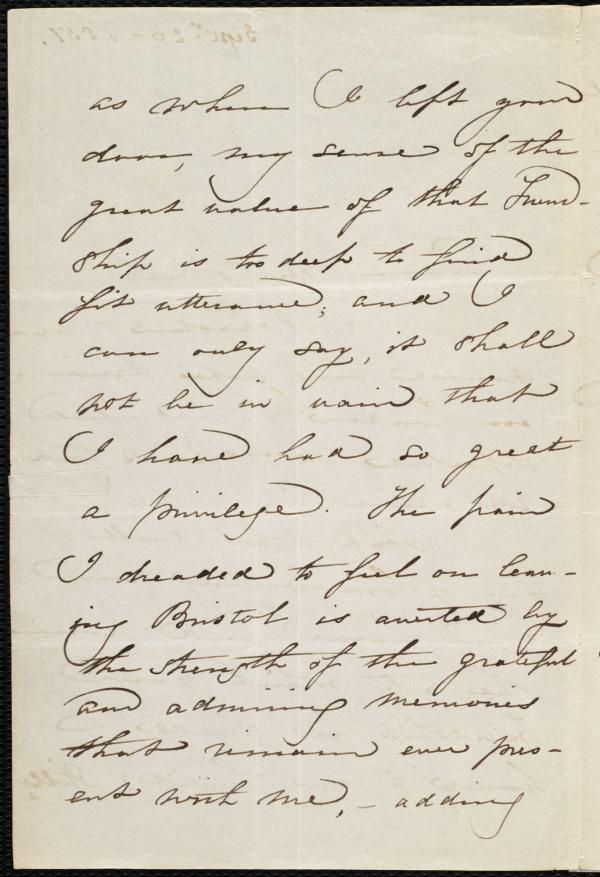 as when I left your
door, my sense of the
great value of that Friend-
ship is too deep to find
fit utterance; and I
can only say, it shall
not be in vain that
I have had so great
a privilege. The pain
I dreaded to feel on leav-
ing Bristol is averted by
the strength of the grateful
and admiring memories
that remain ever pres-
ent with me, - adding